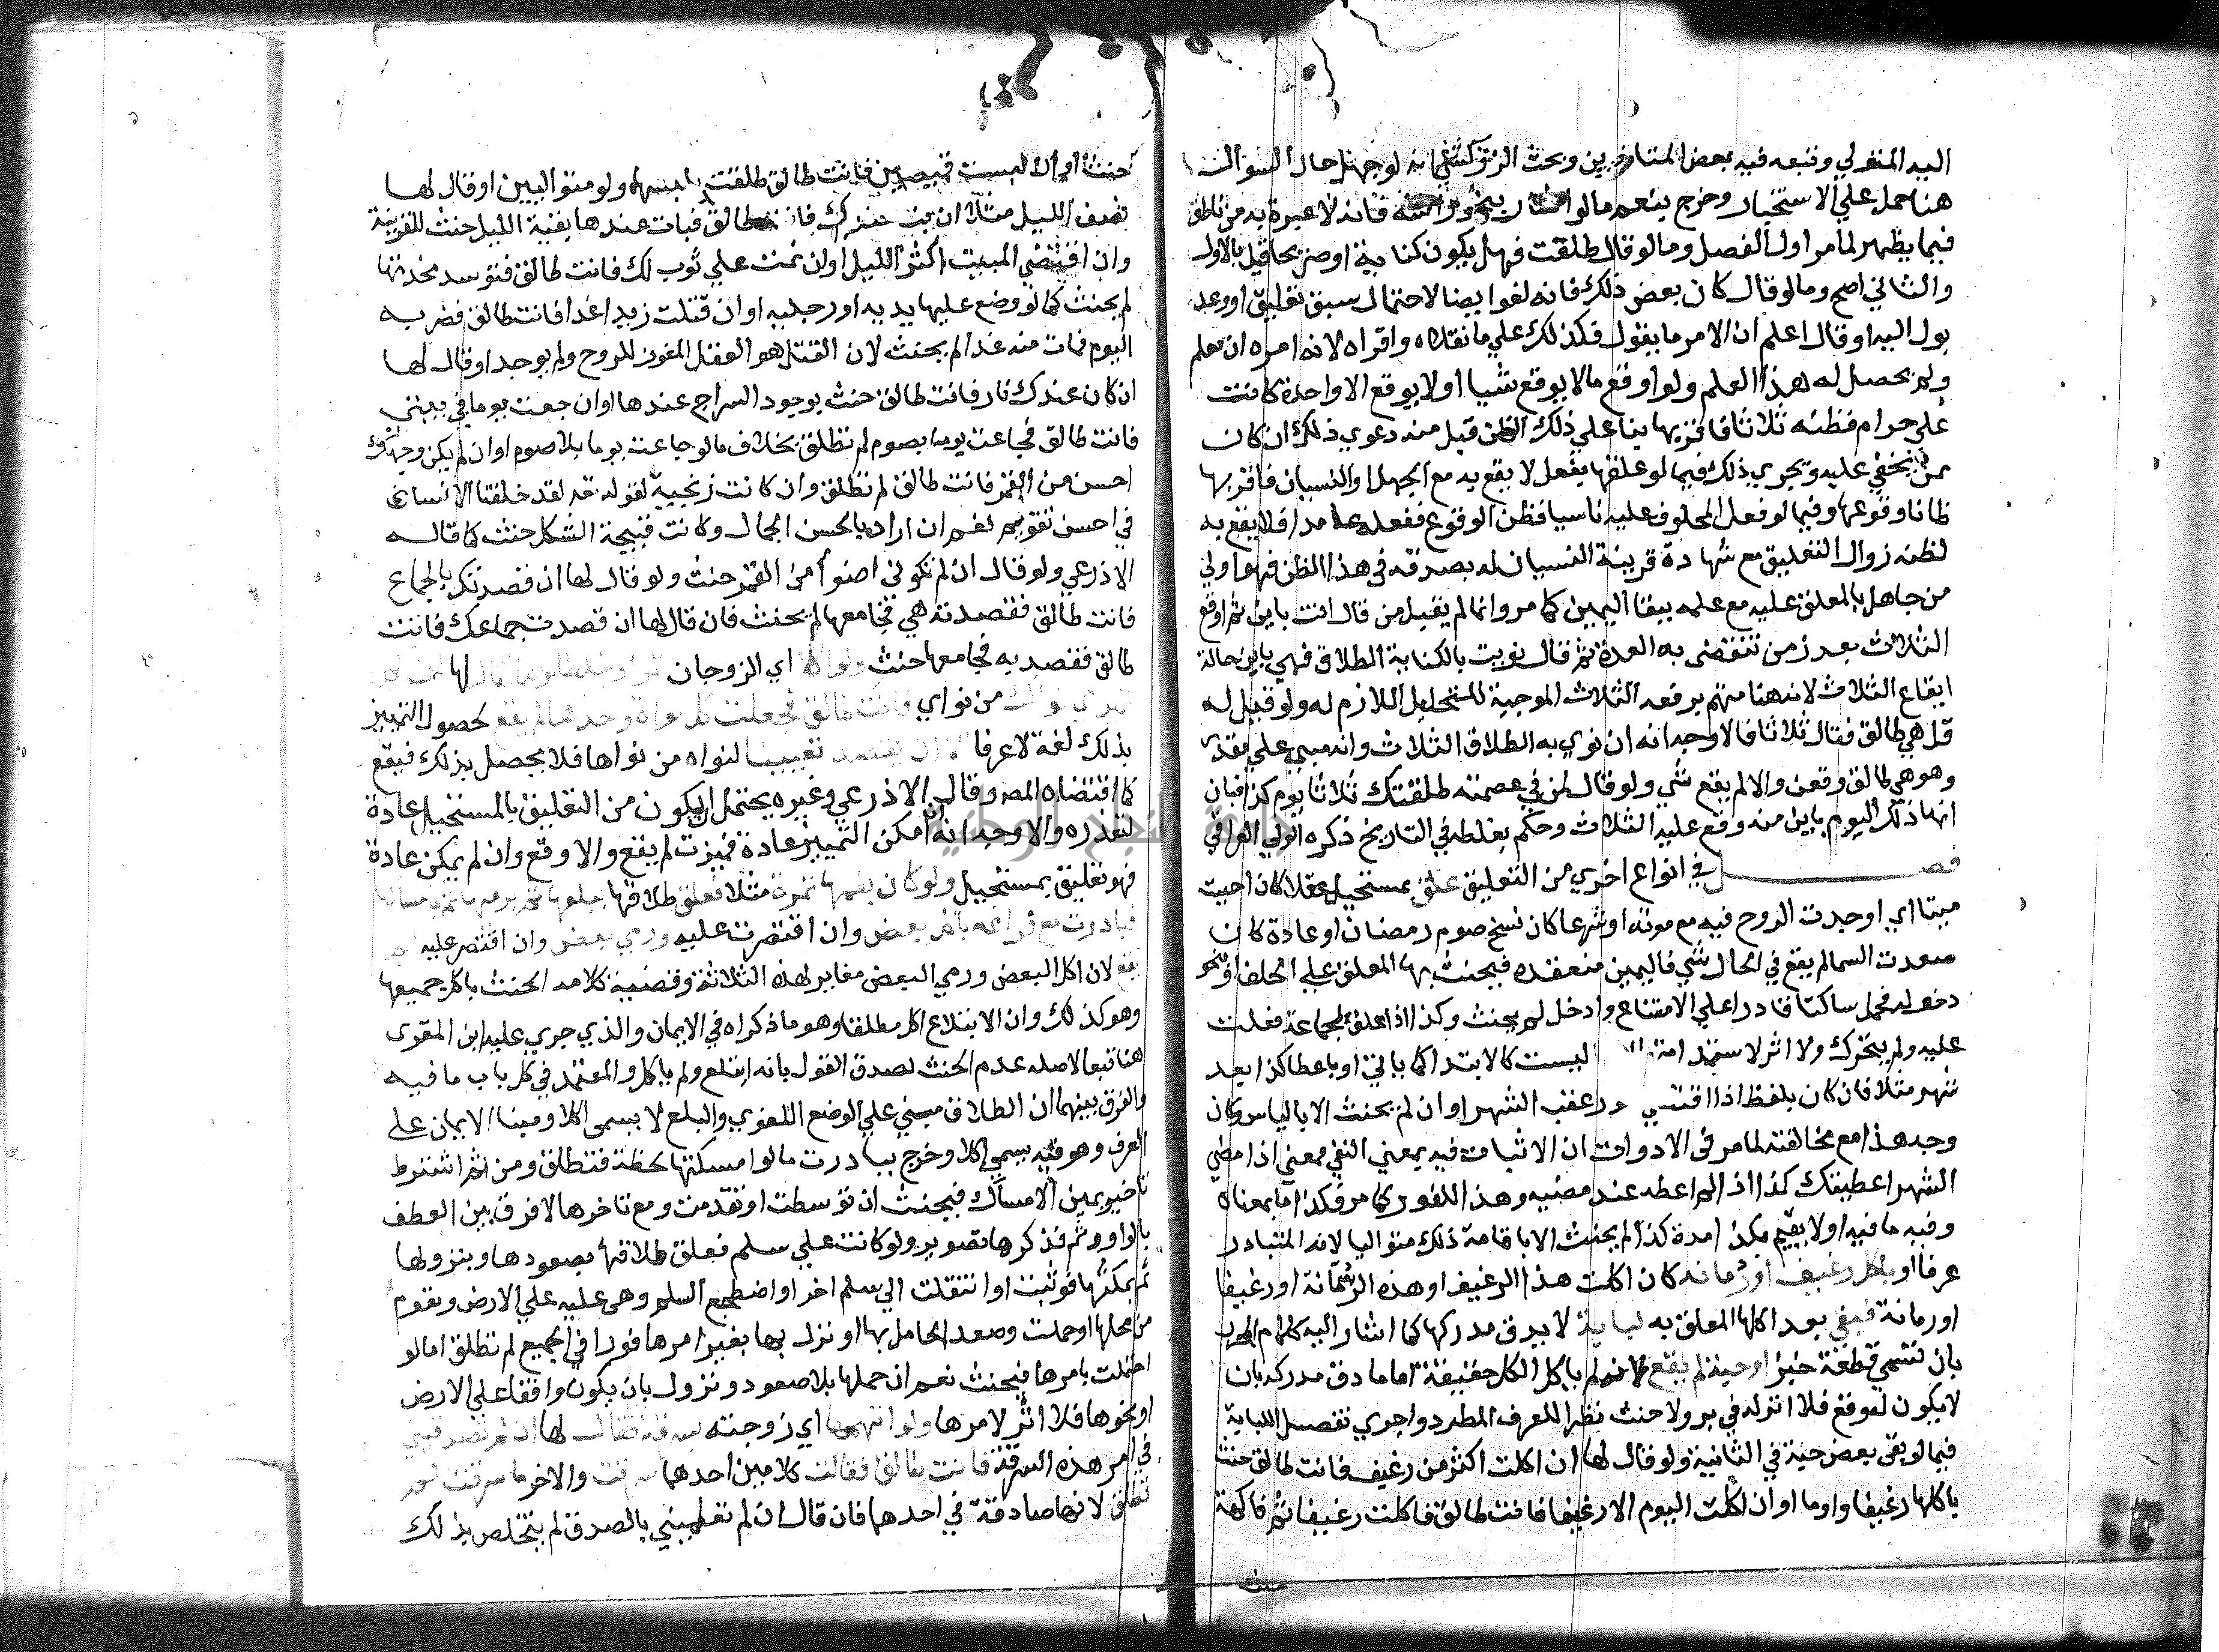 اليه المتولي وتبعه فيه بعض المتاخرين وبحث الزركشي انه لو جهل حال السوال
هنا حمل علي الاستخبار وخرج بنعم ما لو اشار بنحو راسه فانه لا عبرة به من ناطق
فيما يظهر لما مر اول الفصل وما لو قال طلقت فهل يكون كناية او صريحا قيل بالاول
والثاني اصح وما لو قال كان بعض ذلك فانه لغو ايضا لاحتمال سبق تعليق او وعد
يول اليه او قال اعلم ان الامر ما يقول فكذلك علي ما نقلاه واقراه لانه امره ان يعلم
ولم يحصل له هذا العلم ولو اوقع ما لا يوقع شيا او لا يوقع الا واحدة كانت
علي حرام فظنه ثلاثا فاقر بها بنا علي ذلك الظن قبل منه دعوي ذلك ان كان
ممن يخفي عليه ويجري ذلك فيما لو علقها بفعل لا يقع به مع الجهل او النسيان فاقر بها
ظانا وقوعها وفيما لو فعل المحلوف عليه ناسيا فظن الوقوع ففعله عامدا فلا يقع به
لظنه زوال التعليق مع شهادة قرينة النسيان له بصدقه في هذا الظن فهو اولي
من جاهل بالمعلق عليه مع علمه ببقا اليمين كما مر وانما لم يقبل من قال انت باين ثم اوقع
الثلاث بعد زمن تنقضي به العدة ثم قال نويت بالكناية الطلاق فهي باين حالة
ايقاع الثلاث لانه هنا متهم برفعه الثلاث الموجبة للتحليل اللازم له ولو قيل له
قل هي طالق فقال ثلاثا فالاوجه انه ان نوي به الطلاق الثلاث وانه مبني علي مقدر
وهو هي طالق وقعن والا لم يقع شي ولو قال لمن في عصمته طلقتك ثلاثا يوم كذا فبان
انها ذلك اليوم باين منه وقع عليه الثلاث وحكم بغلطه في التاريخ ذكره الولي العراقي
فصـــل في انواع اخري من التعليق علق بمستحيل عقلا كان احييت
ميتا اي اوجدت الروح فيه مع موته او شرعا كان نسخ صوم رمضان او عادة كان
صعدت السما لم يقع في الحال شي فاليمين منعقده فيحنث بها المعلق علي الحلف او نحو
دخوله فحمل ساكتا قادرا علي الامتناع وادخل لم يحنث وكذا اذا علق بجماعه فعلت
عليه ولم يتحرك ولا اثر لاستدامة لبست كالابتدا كما ياتي او باعطا كذا بعد
شهر مثلا فان كان بلفظ اذا اقتضي عقب الشهر او ان لم يحنث الا بالياس وكان
وجه هذا مع مخالفته لما مر في الادوات ان الاثبات فيه بمعني النفي فمعني اذا مضي
الشهر اعطيتك كذا اذا لم اعطه عند مضيه وهذا للفور كما مر فكذا ما بمعناه
وفيه ما فيه او لا يقيم بكذا مدة كذا لم يحنث الا باقامة ذلك متواليا لانه المتبادر
عرفا او باكل رغيف او رمانه كان اكلت هذا الرغيف او هذه الرمانة او رغيفا
او رمانة فبقي بعد اكلها المعلق به لبابة لا يدق مدركها كما اشار اليه كلام
بان تسمي قطعة خبز او حبة لم يقع لانه لم ياكل الكل حقيقة اما ما دق مدركه بان
لا يكون له وقع فلا اثر له في بر ولا حنث نظرا للعرف المطرد واجري تفصيل اللبابة
فيما لو بقي بعض حبة في الثانية ولو قال لها ان اكلت اكثر من رغيف فانت طالق حنث
باكلها رغيفا وادما او ان اكلت اليوم الا رغيفا فانت طالق فاكلت رغيفا ثم فاكهة
حنث
حنث او ان لبست قميصين فانت طالق طلقت بلبسهما ولو متواليين او قال لها
نصف الليل مثلا ان بت عندك فانت طالق فبات عندها بقية الليل حنث للقرينة
وان اقتضي المبيت اكثر الليل او ان نمت علي ثوب لك فانت طالق فتوسد مخدتها
لم يحنث كما لو وضع عليها يديه او رجليه او ان قتلت زيدا غدا فانت طالق فضربه
اليوم فمات منه غدا لم يحنث لان القتل هو الفعل المفوت للروح ولم يوجد او قال لها
ان كان عندك نار فانت طالق حنث بوجود السراج عندها او ان جعت يوما في بيتي
فانت طالق فجاعت يوما بصوم لم تطلق بخلاف ما لو جاعت يوما بلا صوم او ان لم يكن وجهك
احسن من القمر فانت طالق لم تطلق وان كانت زنجية لقوله تعه لقد خلقنا الانسان
في احسن تقويم نعم ان اراد بالحسن الجمال وكانت قبيحة الشكل حنث كما قاله
الاذرعي ولو قال ان لم تكوني اضوا من القمر حنث ولو قال لها ان قصدتك بالجماع
فانت طالق فقصدته هي فجامعها لم يحنث فان قال لها ان قصدت جماعك فانت
طالق فقصديه فجامعها حنث ولو اكلا اي الزوجان تمرا وخلطا نواهما فقال لها ان لم
تميزي نواك من نواي فانت طالق فجعلت كل نواة وحدها لم يقع لحصول التمييز
بذلك لغة لا عرفا الا ان يقصد تعيينا لنواه من نواها فلا يحصل بذلك فيقع
كما اقتضاه المص وقال الاذرعي وغيره يحتمل ان يكون من التعليق بالمستحيل عادة
لتعذره والاوجه انه ان امكن التمييز عادة فميزت لم يقع والا وقع وان لم يمكن عادة
فهو تعليق بمستحيل ولو كان بفمها تمرة مثلا فعلق طلاقها ببلعها ثم برميها ثم بامساكها
فبادرت مع فراغه باكل بعض وان اقتصرت عليه ورمي بعض وان اقتصر عليه لم
يقع لان اكل البعض ورمي البعض مغاير لهذه الثلاثة وقضية كلامه الحنث باكل جميعها
وهو كذلك وان الابتلاع اكل مطلقا وهو ما ذكراه في الايمان والذي جري عليه ابن المقري
هنا تبعا لاصله عدم الحنث لصدق القول بانه ابتلع ولم ياكل والمعتمد في كل باب ما فيه
والفرق بينهما ان الطلاق مبني علي الوضع اللغوي والبلع لا يسمي اكلا ومبنا الايمان علي
العرف وهو فيه يسمي اكلا وخرج ببادرت ما لو امسكتها لحظة فتطلق ومن ثم اشترط
تاخير يمين الامساك فيحنث ان توسطت او تقدمت ومع تاخرها لا فرق بين العطف
بالواو وثم فذكرها تصوير ولو كانت علي سلم فعلق طلاقها بصعودها وبنزولها
ثم بمكثها فوثبت او انتقلت الي سلم اخر او اضطجع السلم وهي عليه علي الارض وتقوم
من محلها او حملت وصعد الحامل بها او نزل بها بغير امرها فورا في الجميع لم تطلق اما لو
حملت بامرها فيحنث نعم ان حملها بلا صعود ونزول بان يكون واقفا علي الارض
او نحوها فلا اثر لامرها ولو اتهمها اي زوجته بسرقة فقال لها ان لم تصدقيني
في امر هذه السرقة فانت طالق فقالت كلامين احدهما سرقت والاخر ما سرقت لم
تطلق لانها صادقة في احدهما فان قال ان لم تعلميني بالصدق لم يتخلص بذلك